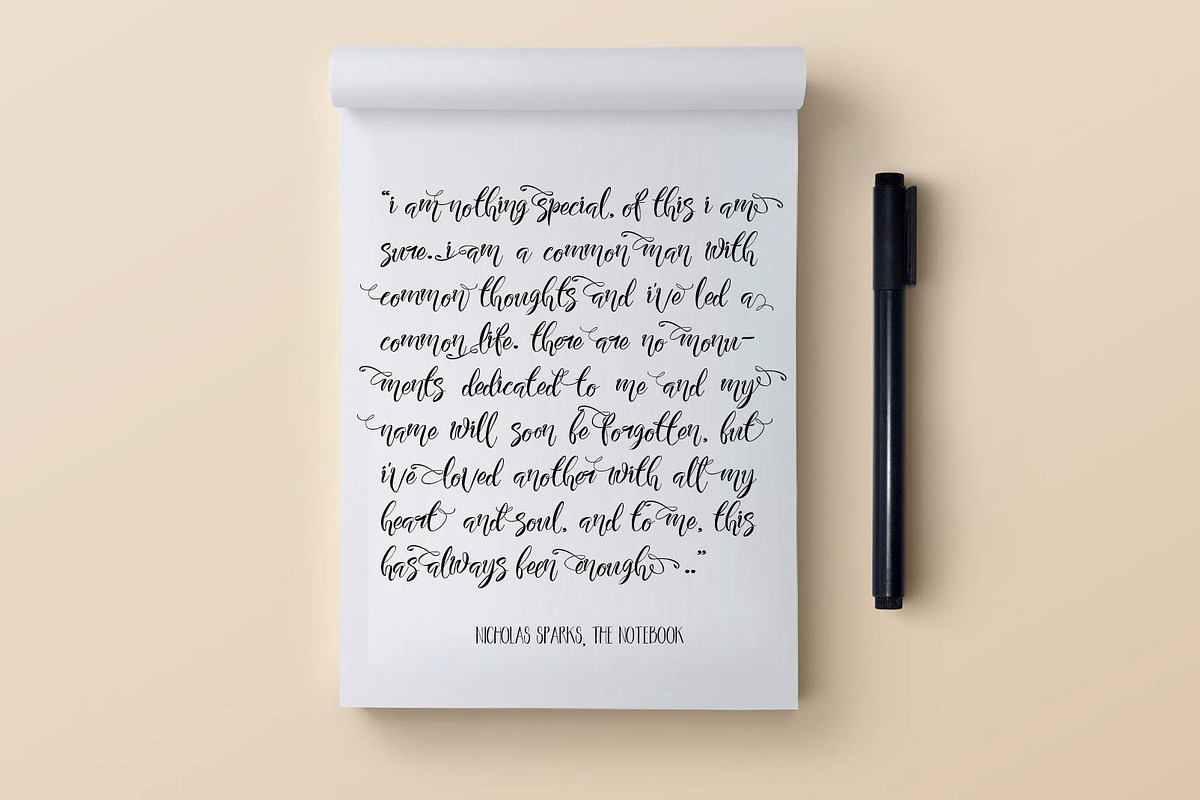 “i am nothing special, of this i am
sure. i am a common man with
common thoughts and i've led a
common life. there are no monu-
ments dedicated to me and my
name will soon be forgotten, but
i've loved another with all my
heart and soul, and to me, this
has always been enough ..”
NICHOLAS SPARKS, THE NOTEBOOK